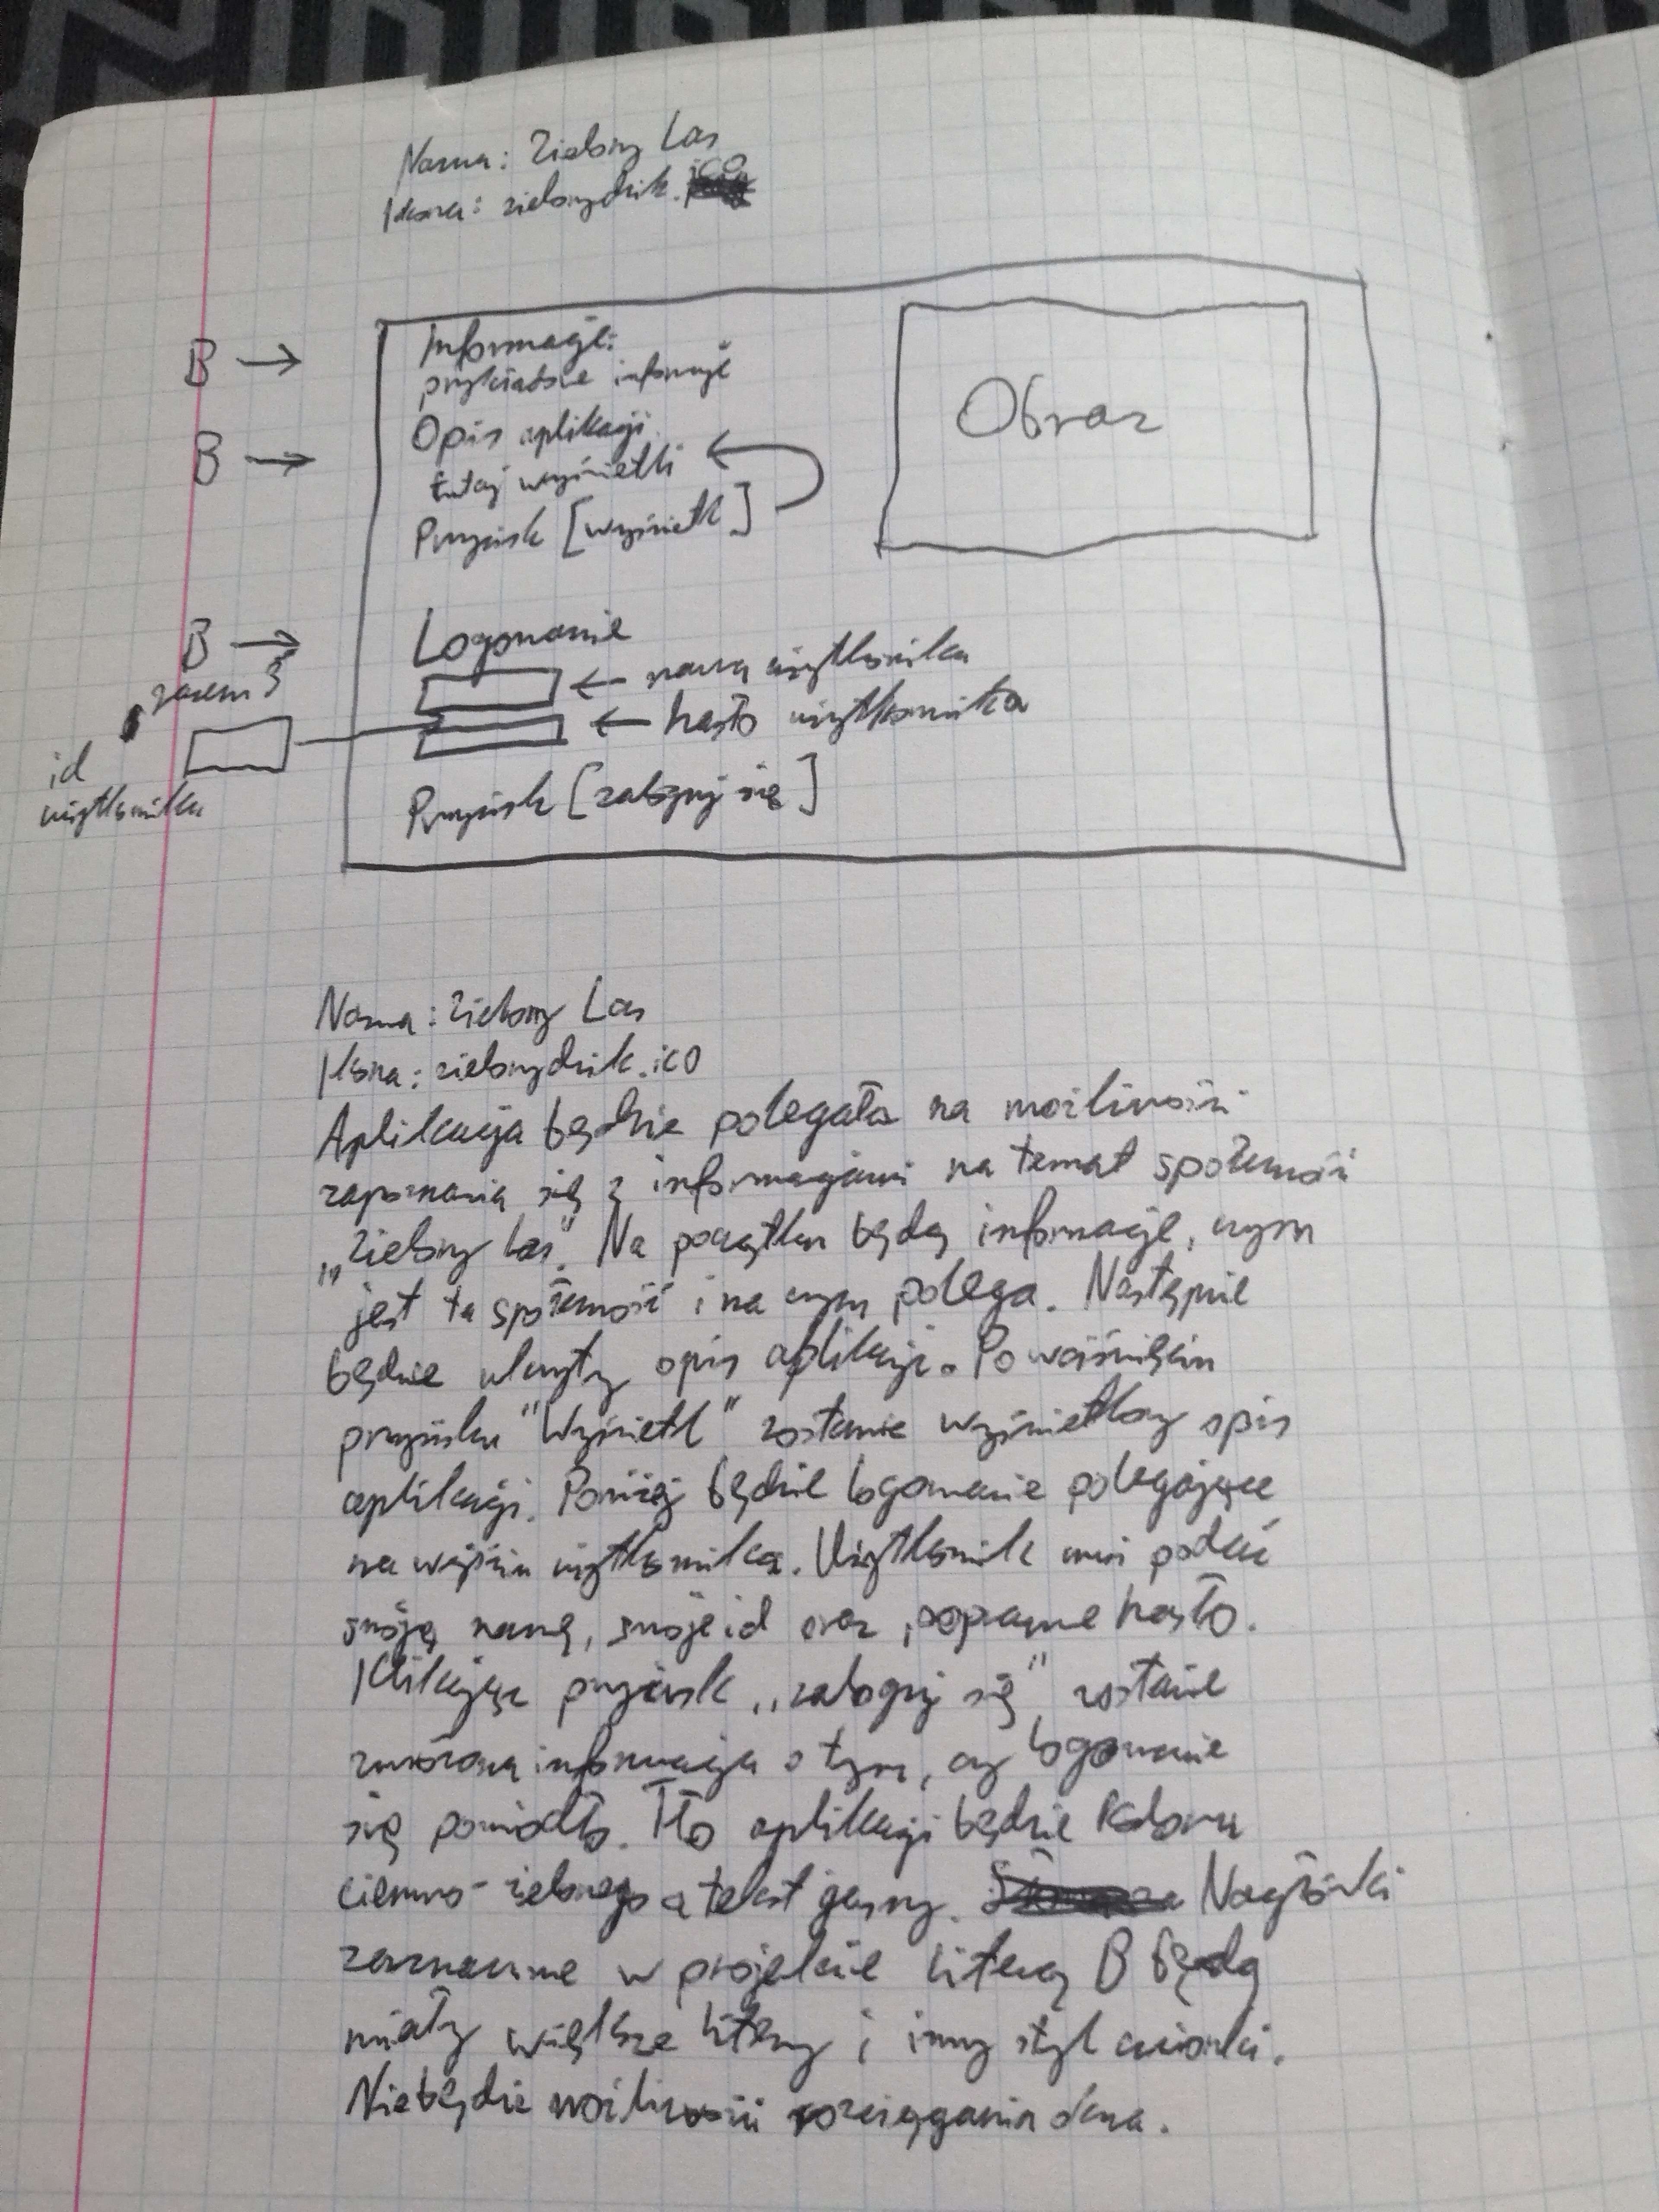 Nazwa: Zielony Las
Ikona: zielonydzik.ico
B →
Informacje:
przykładowe informacje
Obraz
B →
Opis aplikacji
tutaj wyświetli
Przycisk [wyświetl]
B →
Logowanie
razem 3
← nazwa użytkownika
← hasło użytkownika
id
użytkownika
Przycisk [zaloguj się]
Nazwa: Zielony Las
Ikona: zielonydzik.ico
Aplikacja będzie polegała na możliwości
zapoznania się z informacjami na temat społeczności
„Zielony Las". Na początku będą informacje, czym
jest ta społeczność i na czym polega. Następnie
będzie ukryty opis aplikacji. Po wciśnięciu
przycisku "Wyświetl" zostanie wyświetlony opis
aplikacji. Poniżej będzie logowanie polegające
na wejściu użytkownika. Użytkownik musi podać
swoją nazwę, swoje id oraz poprawne hasło.
Klikając przycisk „zaloguj się" zostanie
zwrócona informacja o tym, czy logowanie
się powiodło. Tło aplikacji będzie koloru
ciemno-zielonego a tekst jasny. Nagłówki
zaznaczone w projekcie literą B będą
miały większe litery i inny styl czcionki.
Nie będzie możliwości rozciągania okna.